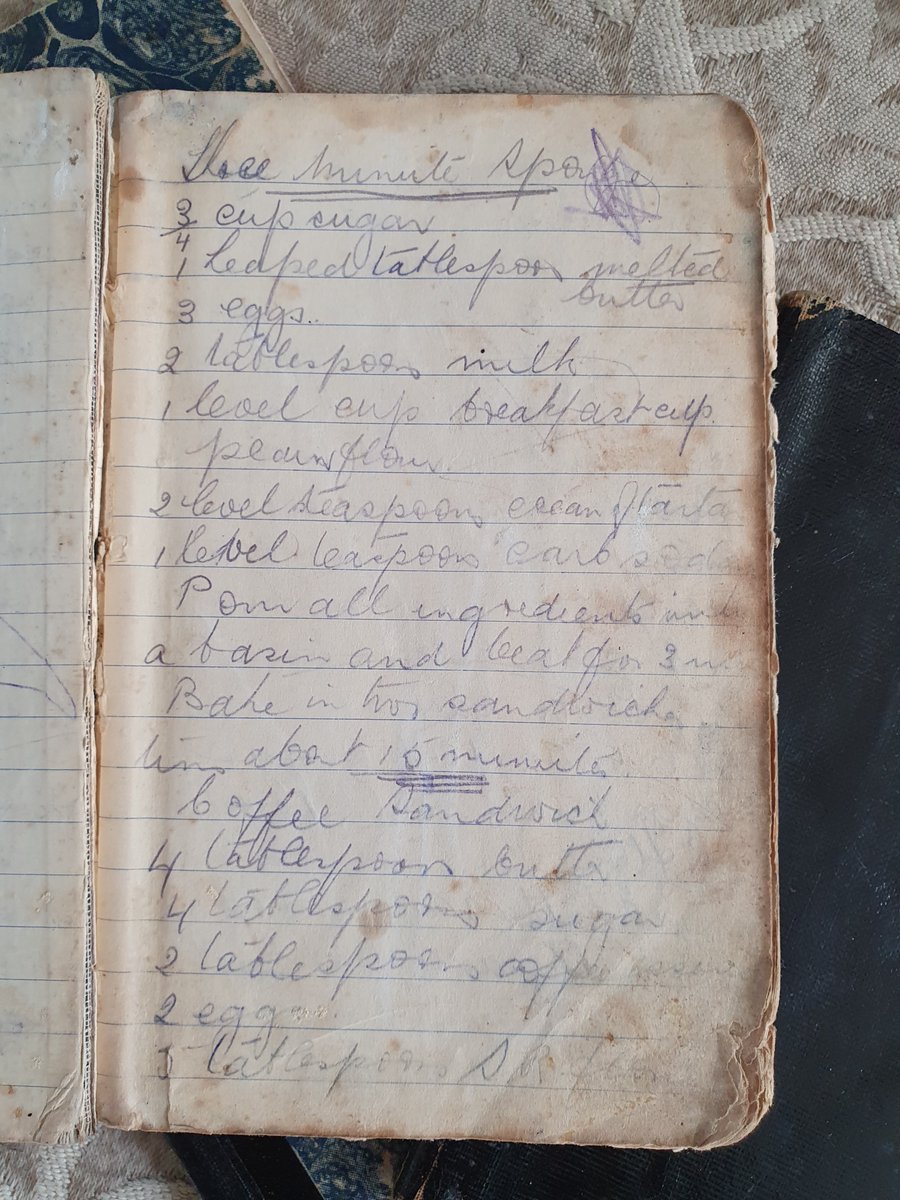 Three Minute Sponge
3/4 cup sugar
1 heaped tablespoon melted
butter
3 eggs..
2 tablespoons milk
1 level cup breakfast cup
plain flour.
2 level teaspoons cream of tarta
1 level teaspoon carb soda
Pour all ingredients into
a basin and beat for 3 min
Bake in two sandwich
tins about 15 minutes.
Coffee Sandwich
4 tablespoons butter
4 tablespoons sugar
2 tablespoons coffee
2 eggs
3 tablespoons S R flour